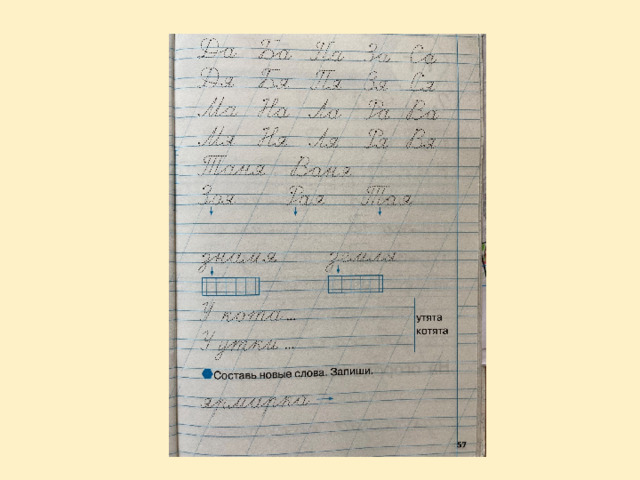 Да Ба Па За Са
Дя Бя Пя Зя Ся
Ма На Ла Ра Ва
Мя Ня Ля Ря Вя
Таня Ваня
Зоя Рая Тая
знамя земля
У кота...
У утки...
утята
котята
Составь новые слова. Запиши.
ярмарка →
57